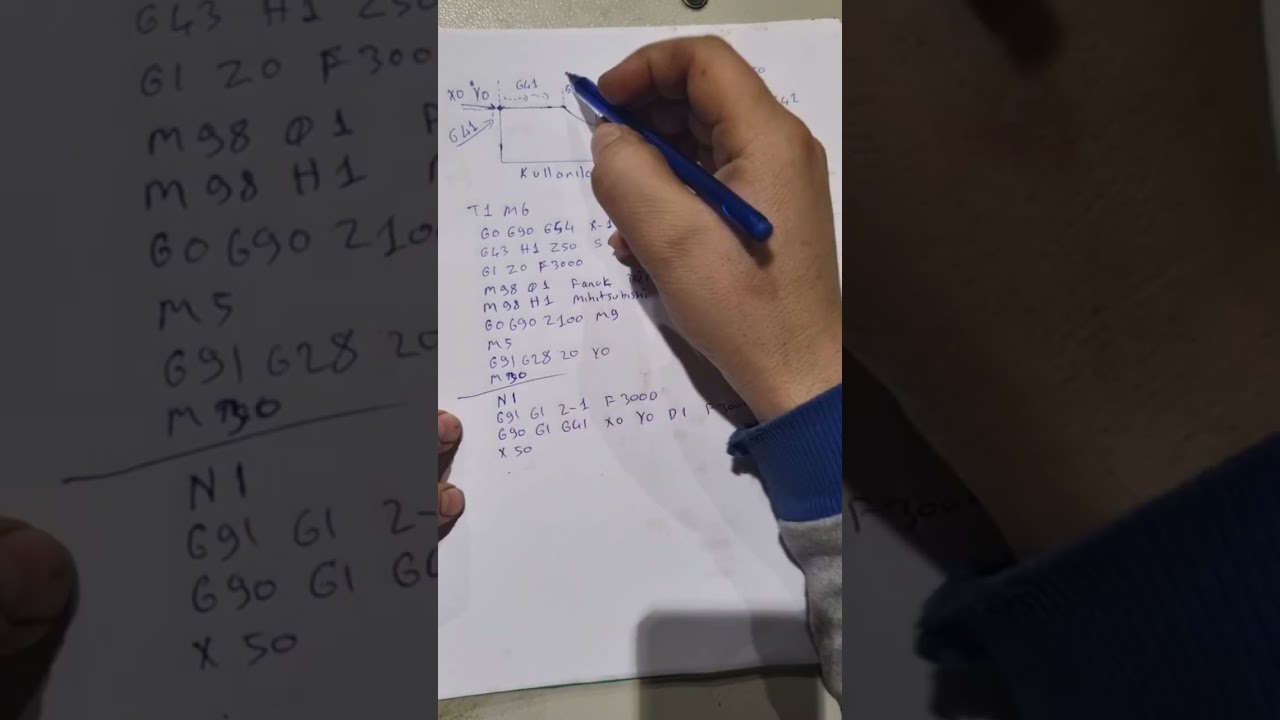 G41
X0 Y0
G41
G42
Kullanıla
T1 M6
G0 G90 G54 X-1
G43 H1 Z50 S
G1 Z0 F3000
M98 Q1 Fanuk
M98 H1 Mihitsubishi
G0 G90 Z100 M9
M5
G91 G28 Z0 Y0
M30
N1
G91 G1 Z-1 F3000
G90 G1 G41 X0 Y0 D1 F300
X 50